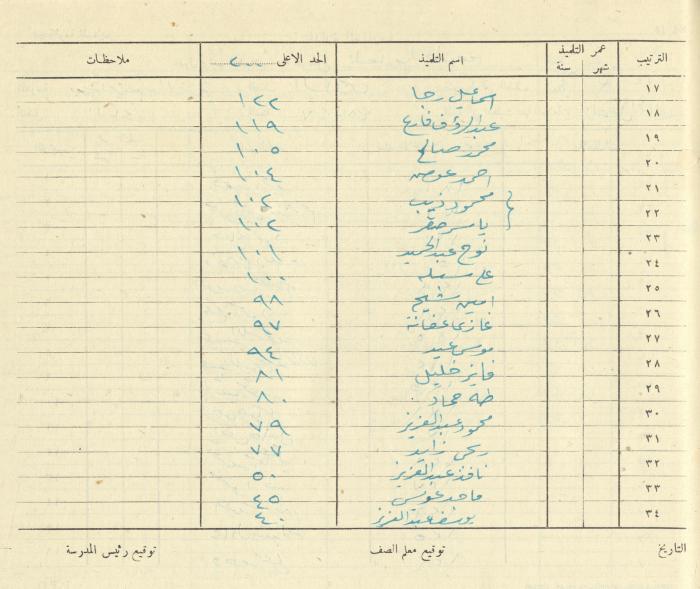 الترتيب عمر التلميذ اسم التلميذ الحد الاعلى ٢٠٠ ملاحظات
شهر سنة
١٧ اسماعيل رجا ١٢٢
١٨ عبد الرؤف فارع ١١٩
١٩ محمد صالح ١٠٥
٢٠ احمد عوض ١٠٤
٢١ محمود ذيب ١٠٢
٢٢ ياسر صقر ١٠٢
٢٣ نوح عبد الحميد ١٠١
٢٤ علي ١٠٠
٢٥ امين شيخ ٩٨
٢٦ غازي عفانة ٩٧
٢٧ موسى عيد ٩٤
٢٨ فايز خليل ٨١
٢٩ طه حماد ٨٠
٣٠ محمود عبد العزيز ٧٩
٣١ ربحي زايد ٧٧
٣٢ نافذ عبد العزيز ٥٠
٣٣ ماجد موسى ٤٥
٣٤ يوسف عبد العزيز ٤٠
التاريخ توقيع معلم الصف توقيع رئيس المدرسة